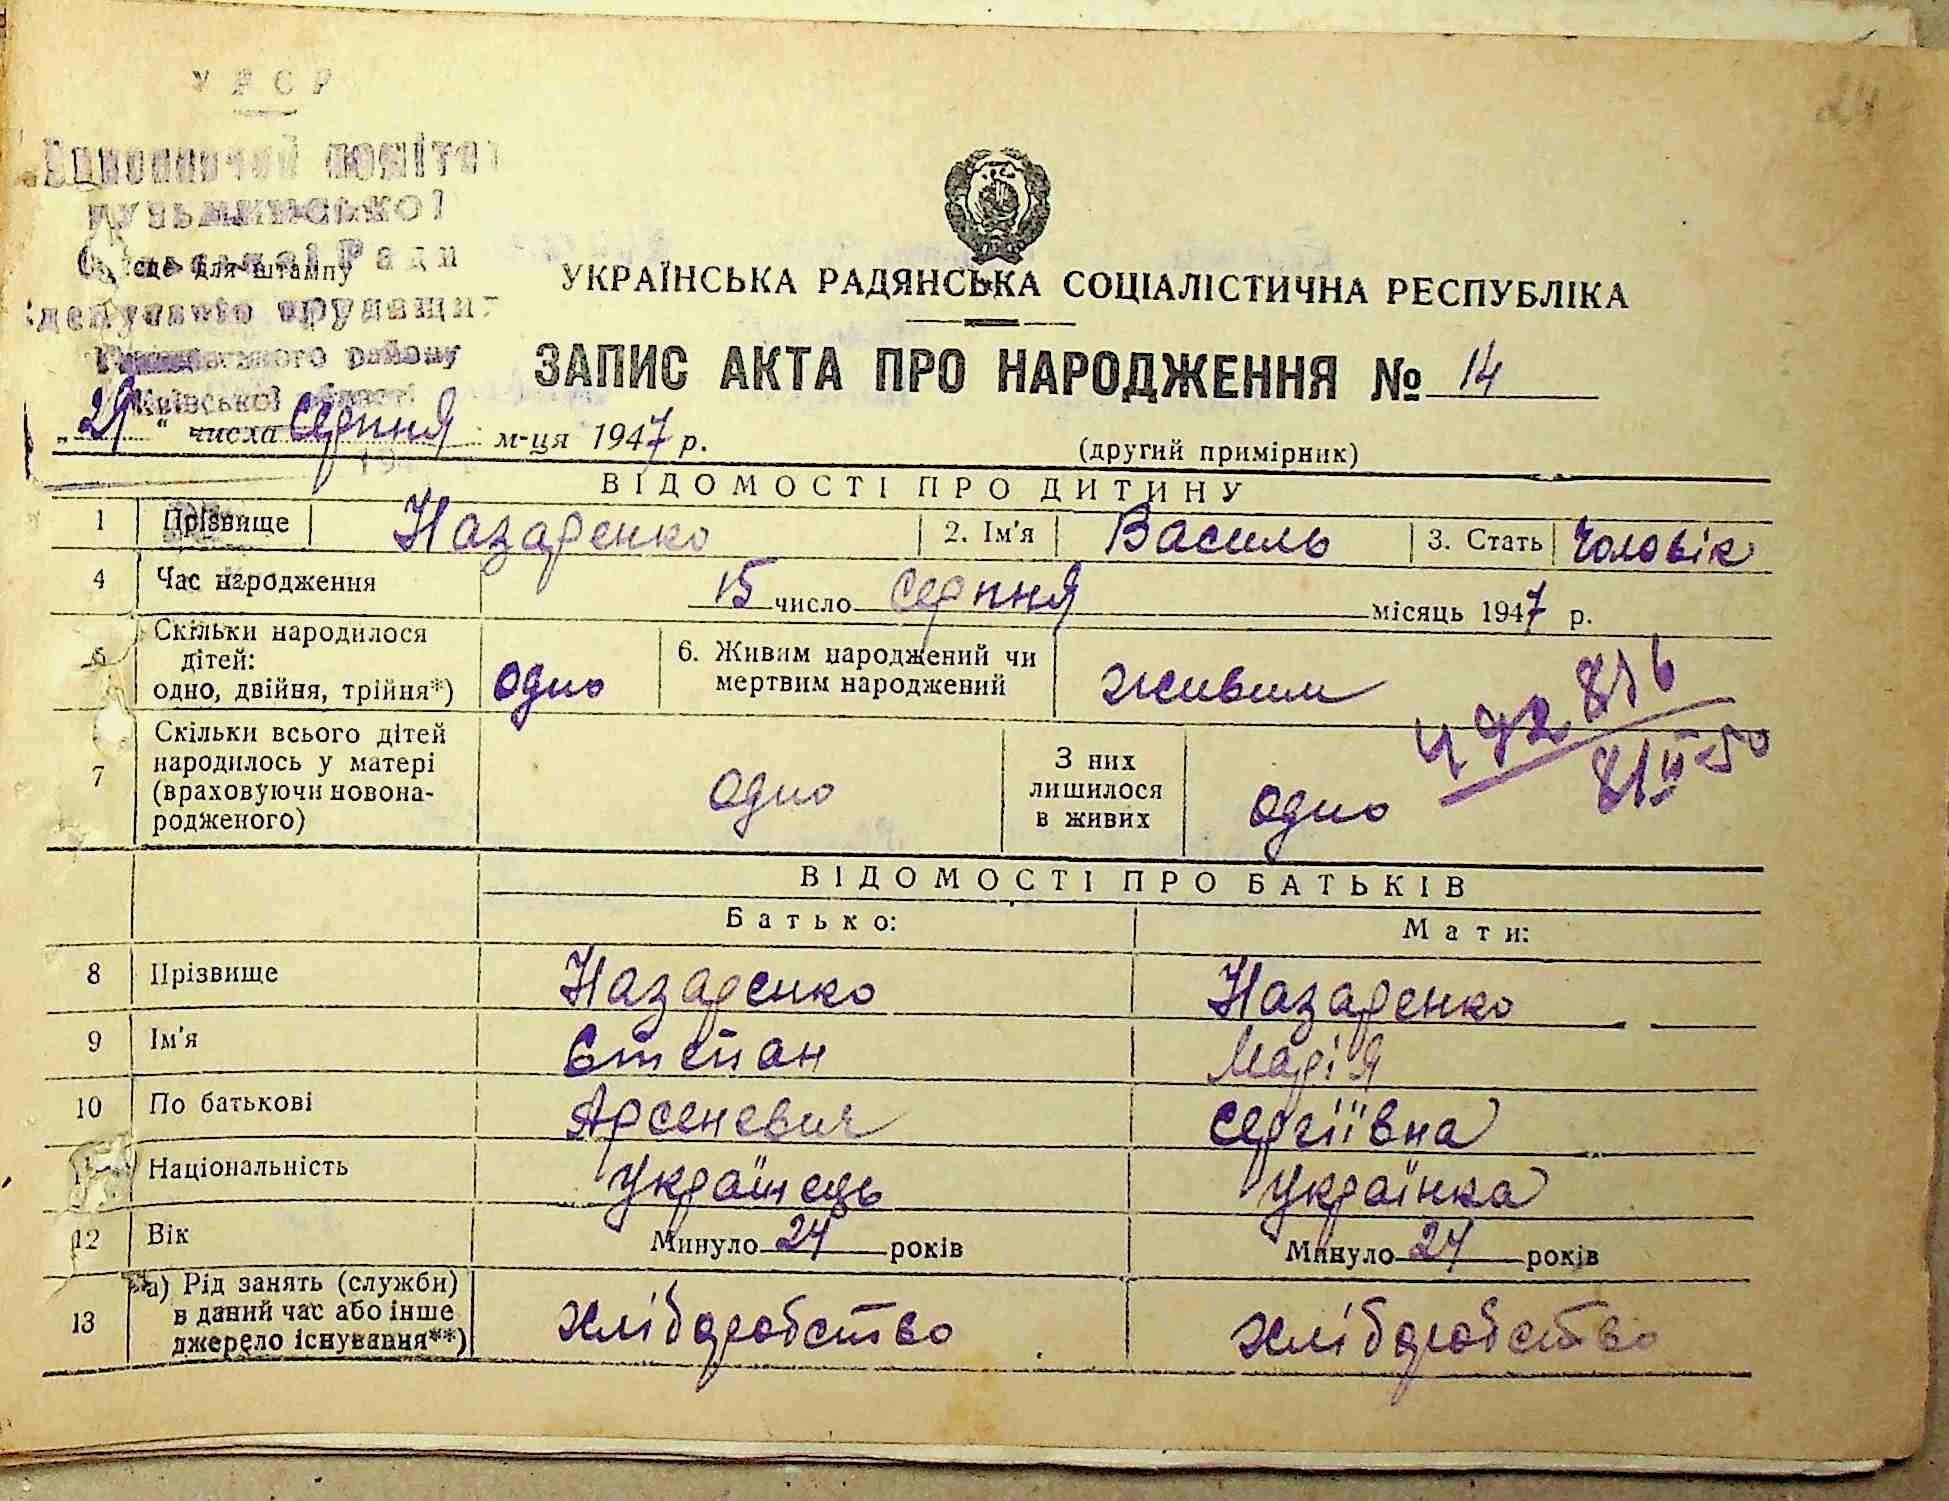 УРСР
Виконавчий комітет
Кузьминської
Сільської Ради
сце для штампу
депутатів трудящих
району
Київської області
УКРАЇНСЬКА РАДЯНСЬКА СОЦІАЛІСТИЧНА РЕСПУБЛІКА
ЗАПИС АКТА ПРО НАРОДЖЕННЯ № 14
„29“ числа серпня м-ця 1947 р.
(другий примірник)
ВІДОМОСТІ ПРО ДИТИНУ
1 Прізвище Назаренко 2. Ім'я Василь 3. Стать Чоловік
4 Час народження 15 число серпня місяць 1947 р.
5 Скільки народилося
дітей:
одно, двійня, трійня*) одно
6. Живим народжений чи
мертвим народжений живим
7 Скільки всього дітей
народилось у матері
(враховуючи новона-
родженого) одно
З них
лишилося
в живих одно
ВІДОМОСТІ ПРО БАТЬКІВ
Батько: Мати:
8 Прізвище Назаренко Назаренко
9 Ім'я Степан Марія
10 По батькові Арсеневич Сергіївна
Національність Українець Українка
12 Вік Минуло 24 років Минуло 24 років
13 а) Рід занять (служби)
в даний час або інше
джерело існування**) хлібаробство хлібаробство